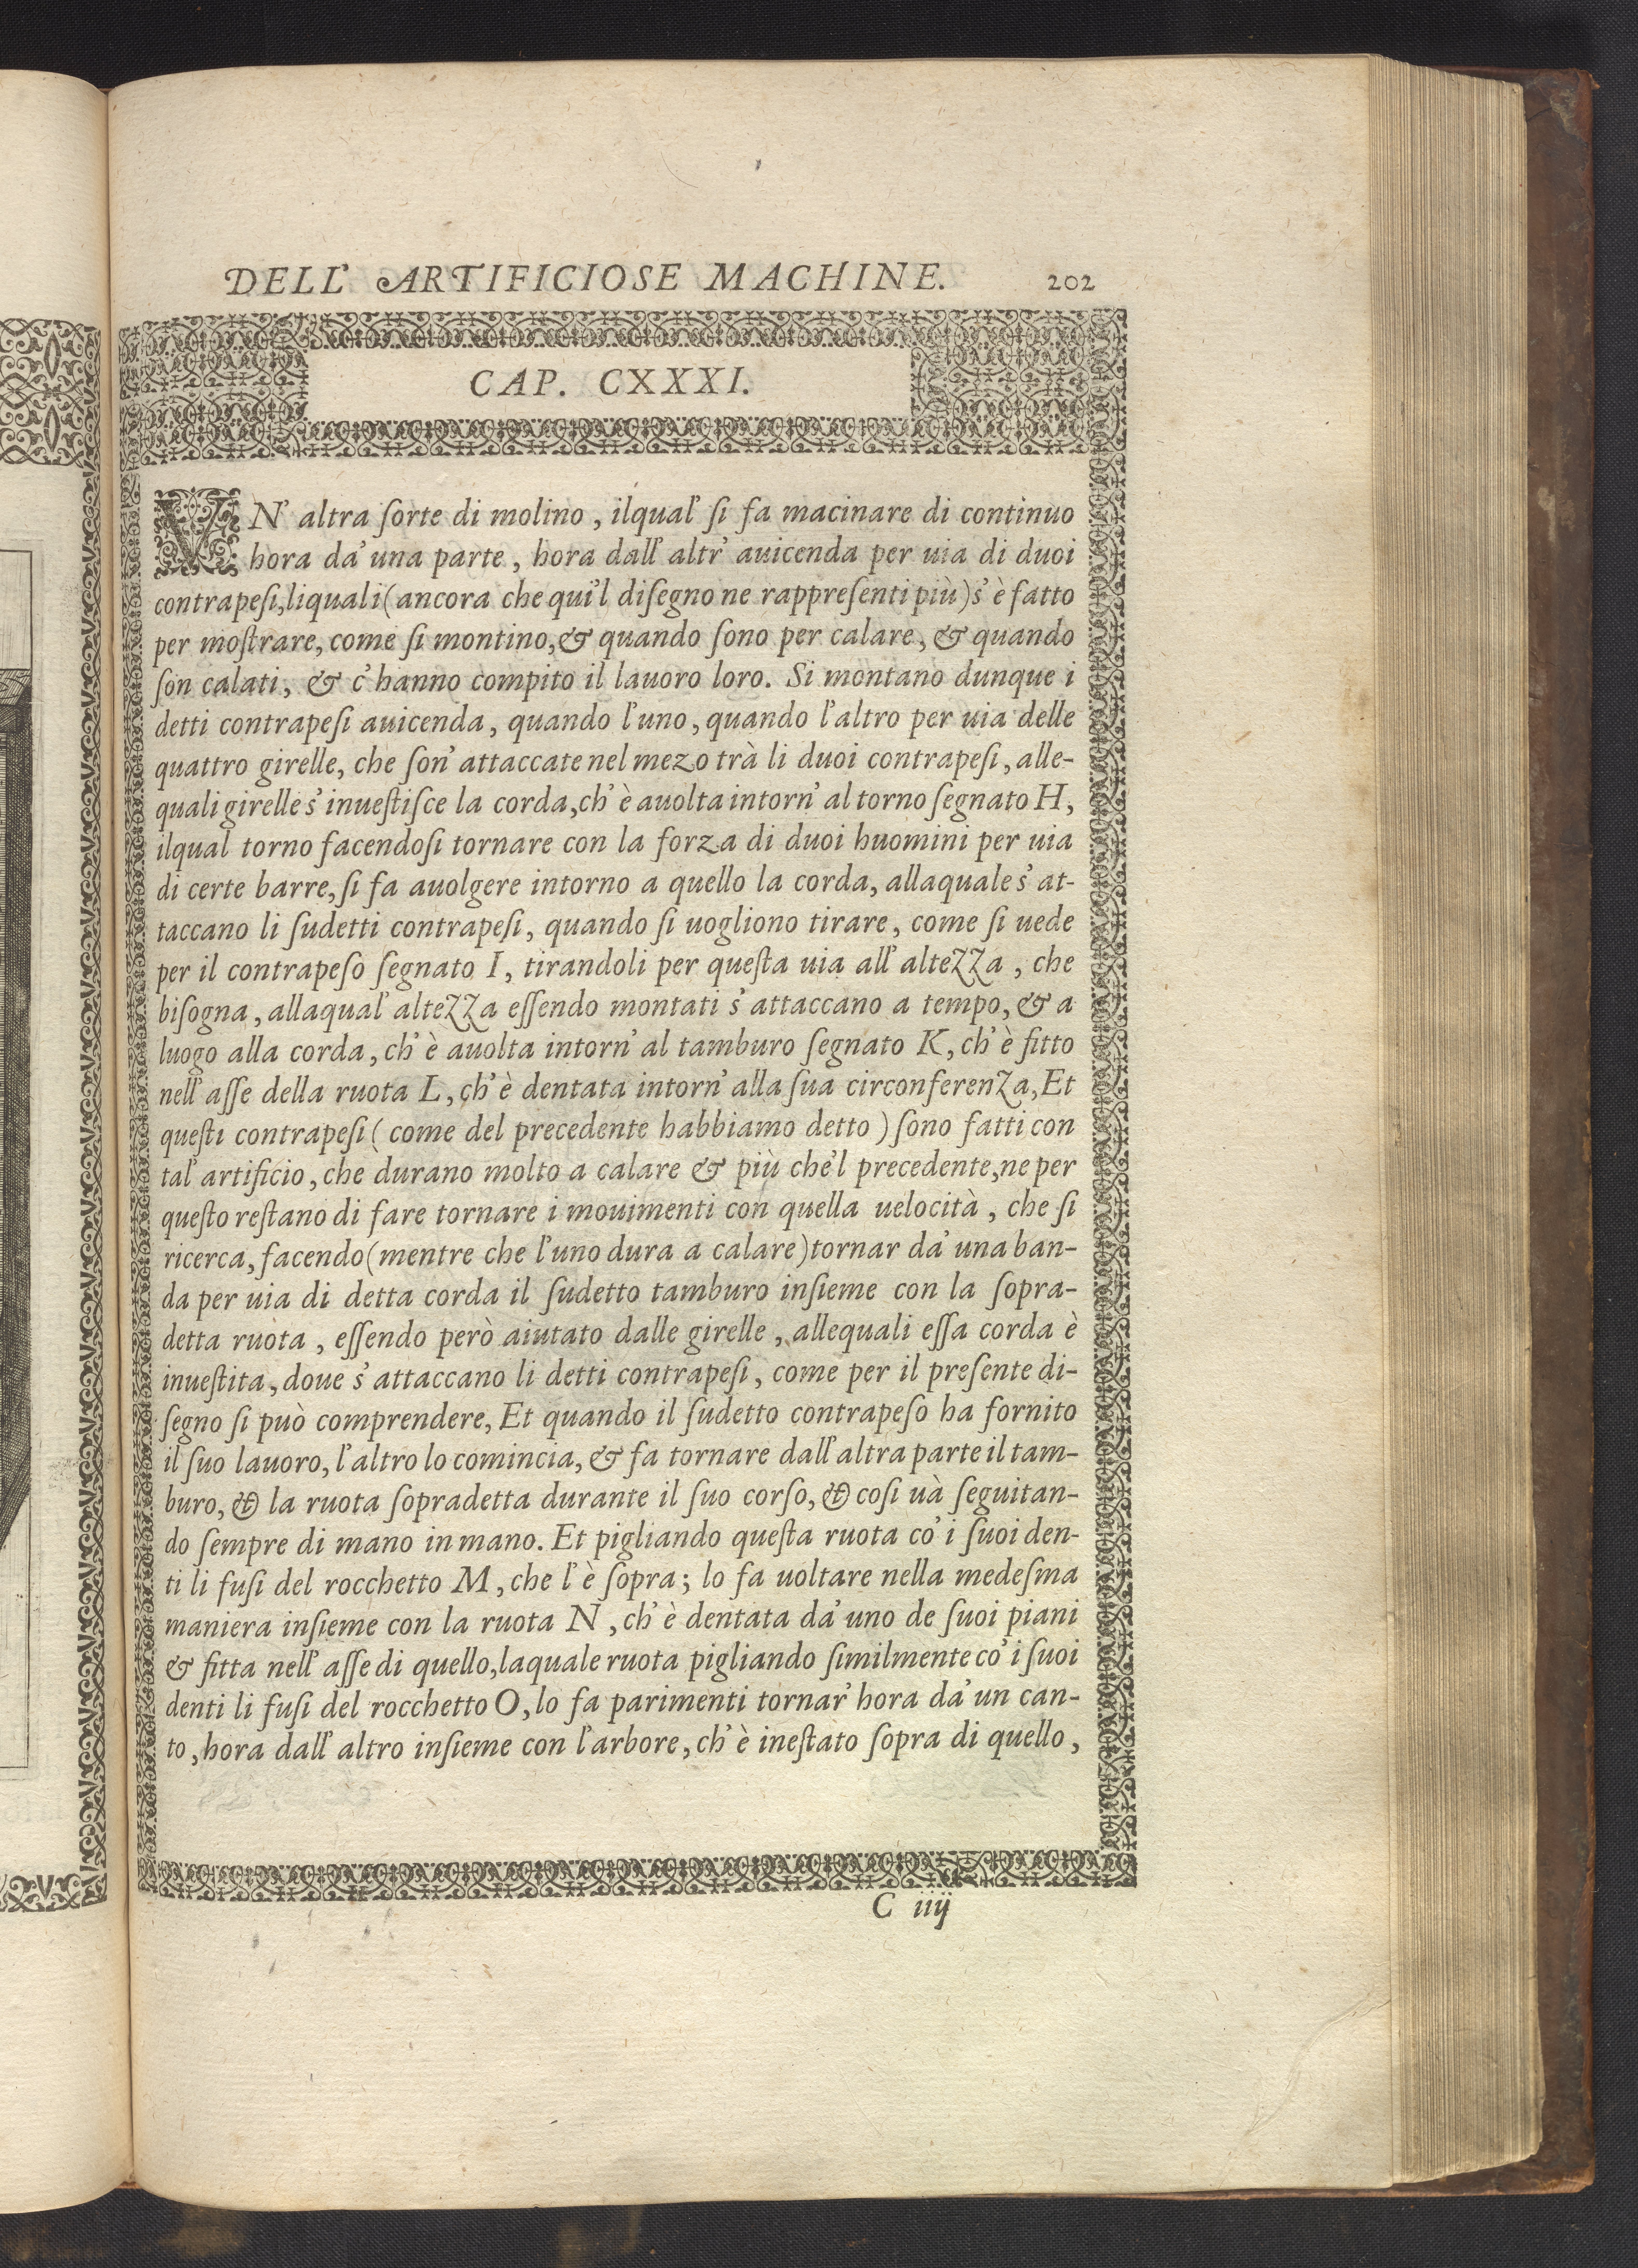 DELL' ARTIFICIOSE MACHINE. 202
CAP. CXXXI.
VN' altra ſorte di molino, ilqual' ſi fa macinare di continuo
hora da' una parte, hora dall' altr' auicenda per uia di duoi
contrapeſi, liquali (ancora che qui'l diſegno ne rappreſenti più) s' è fatto
per moſtrare, come ſi montino, & quando ſono per calare, & quando
ſon calati, & c' hanno compito il lauoro loro. Si montano dunque i
detti contrapeſi auicenda, quando l'uno, quando l'altro per uia delle
quattro girelle, che ſon' attaccate nel mezo trà li duoi contrapeſi, alle-
quali girelle s' inueſtiſce la corda, ch' è auolta intorn' al torno ſegnato H,
ilqual torno facendoſi tornare con la forza di duoi huomini per uia
di certe barre, ſi fa auolgere intorno a quello la corda, allaquale s' at-
taccano li ſudetti contrapeſi, quando ſi uogliono tirare, come ſi uede
per il contrapeſo ſegnato I, tirandoli per queſta uia all' altezza, che
biſogna, allaqual' altezza eſſendo montati s' attaccano a tempo, & a
luogo alla corda, ch' è auolta intorn' al tamburo ſegnato K, ch' è fitto
nell' aſſe della ruota L, ch' è dentata intorn' alla ſua circonferenza, Et
queſti contrapeſi (come del precedente habbiamo detto) ſono fatti con
tal' artificio, che durano molto a calare & più che'l precedente, ne per
queſto reſtano di fare tornare i mouimenti con quella uelocità, che ſi
ricerca, facendo (mentre che l'uno dura a calare) tornar da' una ban-
da per uia di detta corda il ſudetto tamburo inſieme con la ſopra-
detta ruota, eſſendo però aiutato dalle girelle, allequali eſſa corda è
inueſtita, doue s' attaccano li detti contrapeſi, come per il preſente di-
ſegno ſi può comprendere, Et quando il ſudetto contrapeſo ha fornito
il ſuo lauoro, l'altro lo comincia, & fa tornare dall' altra parte il tam-
buro, & la ruota ſopradetta durante il ſuo corſo, & coſi uà ſeguitan-
do ſempre di mano in mano. Et pigliando queſta ruota co' i ſuoi den-
ti li fuſi del rocchetto M, che l' è ſopra; lo fa uoltare nella medeſma
maniera inſieme con la ruota N, ch' è dentata da' uno de ſuoi piani
& fitta nell' aſſe di quello, laquale ruota pigliando ſimilmente co' i ſuoi
denti li fuſi del rocchetto O, lo fa parimenti tornar' hora da' un can-
to, hora dall' altro inſieme con l'arbore, ch' è ineſtato ſopra di quello,
C iiij